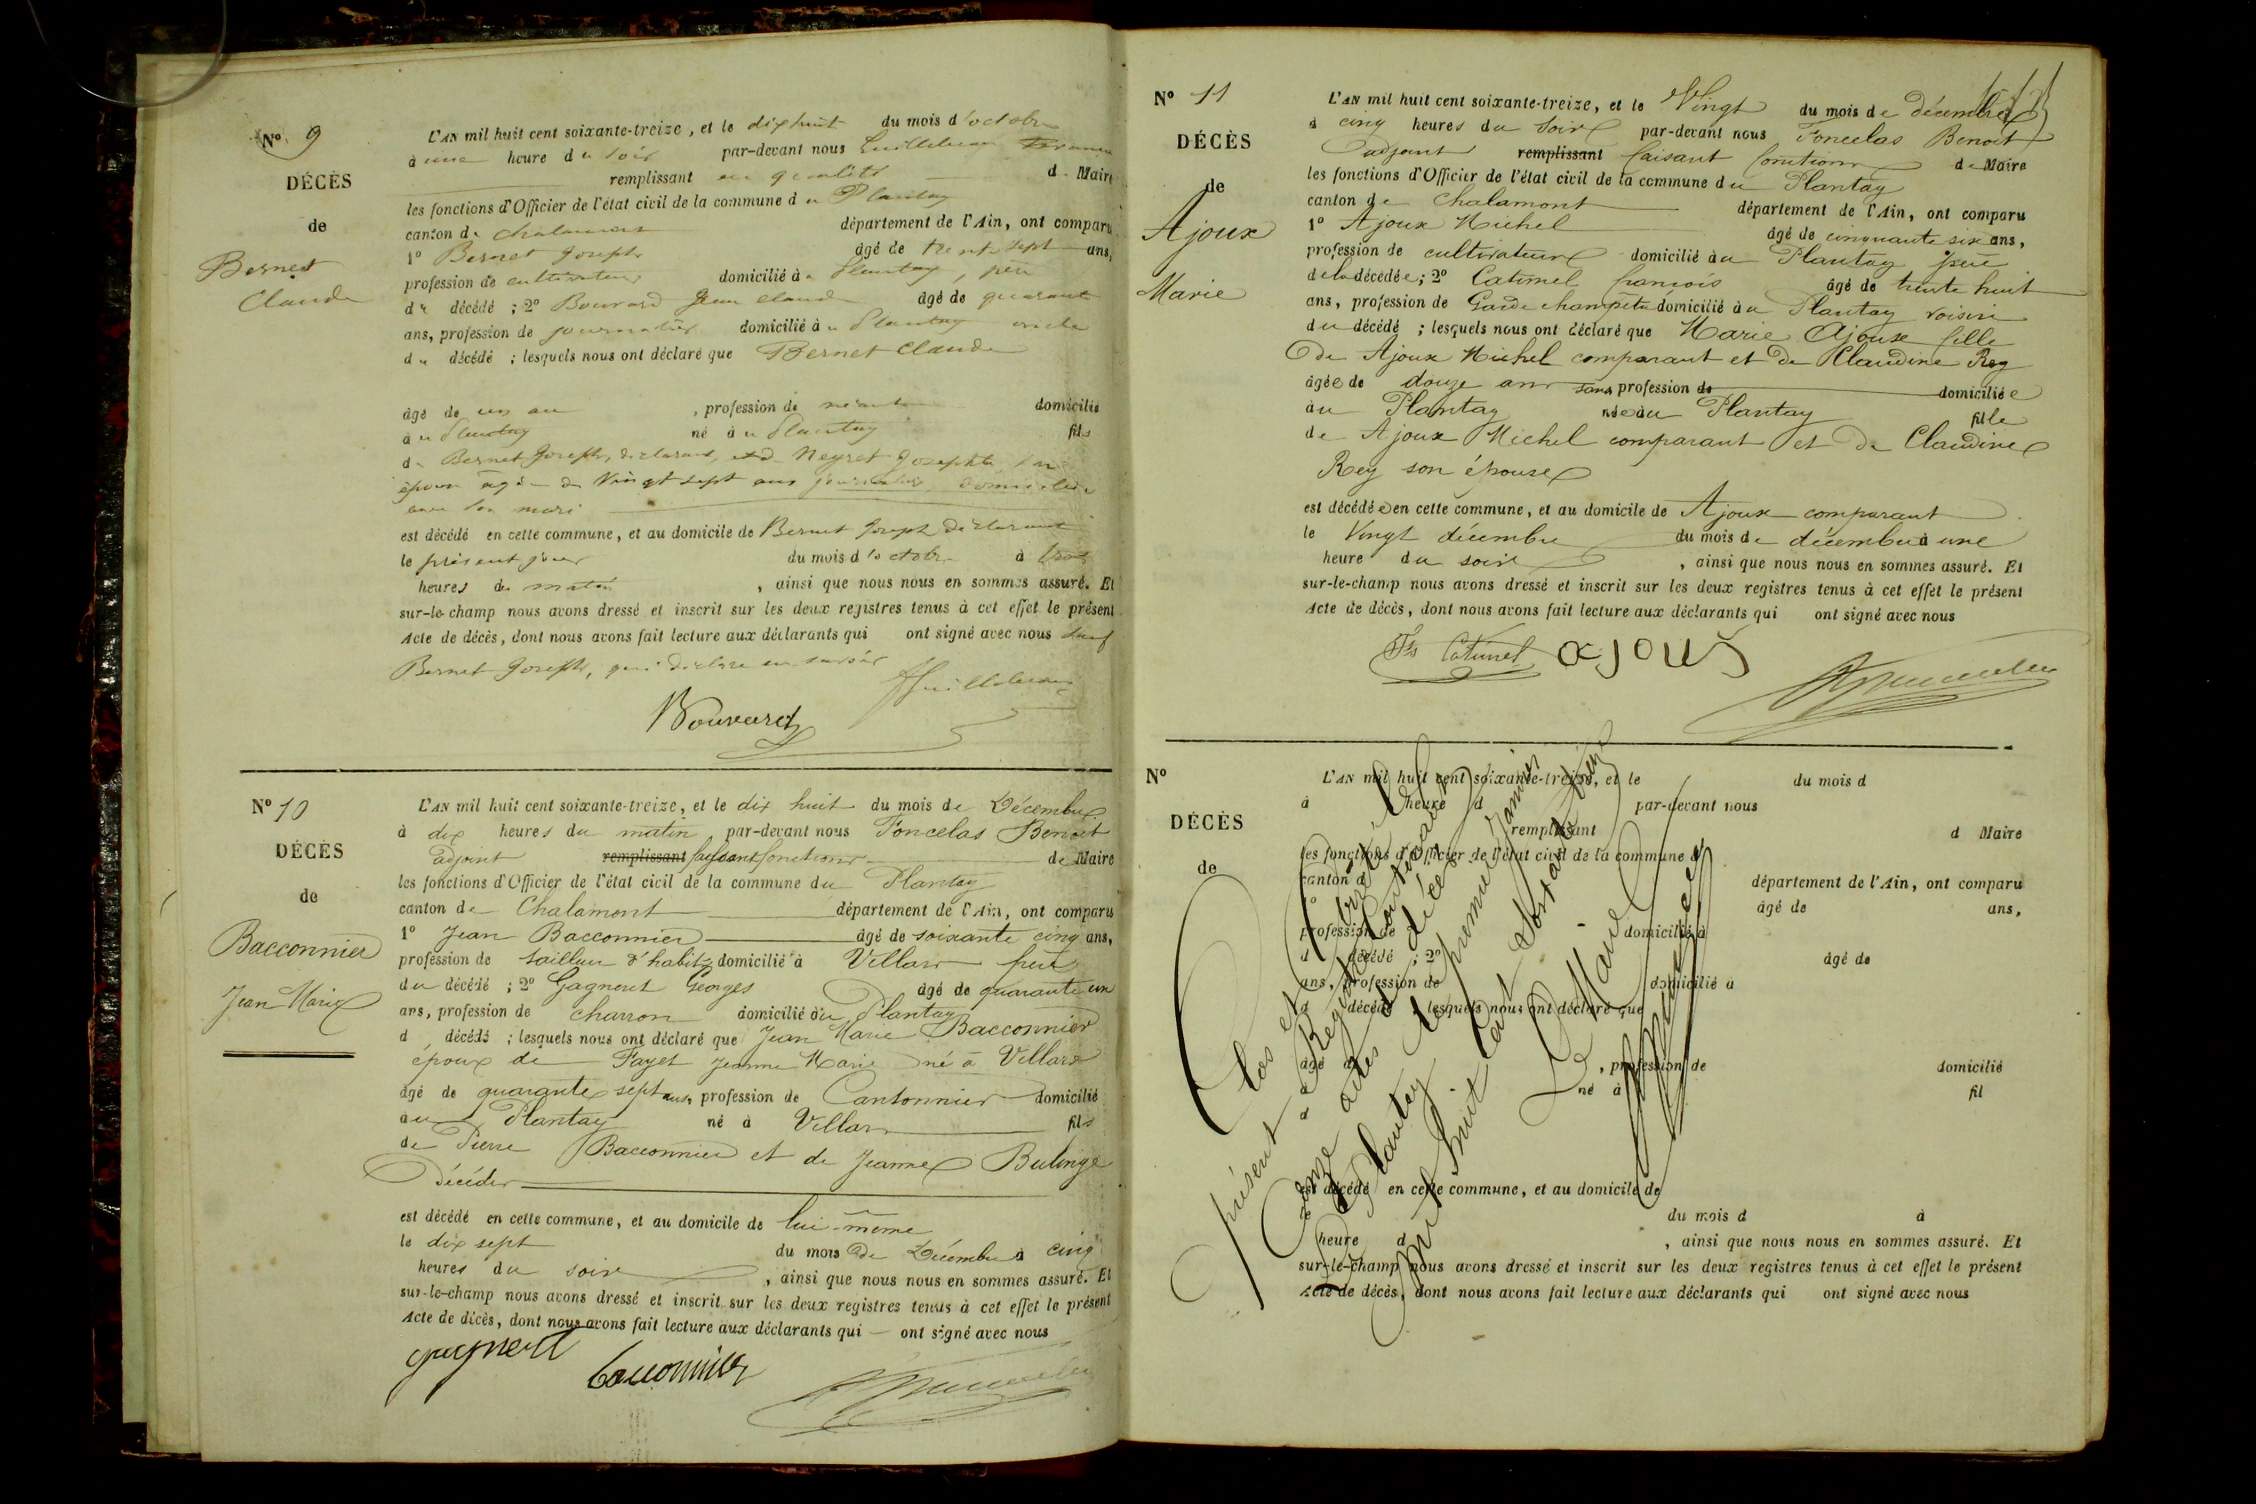 Nº 9
DÉCÈS
de
Bernet
Claude
L'AN mil huit cent soixante-treize, et le dix huit du mois d'octobre
à une heure du soir par-devant nous
remplissant en qualité de Maire
les fonctions d'Officier de l'état civil de la commune du Plantay
canton de Chalamont département de l'Ain, ont comparu
1º Bernet Joseph âgé de trente sept ans,
profession de cultivateur domicilié au Plantay, père
du décédé ; 2º Bouvard Jean Claude âgé de quarante
ans, profession de journalier domicilié au Plantay oncle
du décédé ; lesquels nous ont déclaré que Bernet Claude
âgé de un an , profession de néant domicilié
au Plantay né au Plantay fils
de Bernet Joseph, déclarant, et de Neyret Josephte, son
épouse âgée de Vingt sept ans journalière, domiciliée
avec son mari
est décédé en cette commune, et au domicile de Bernet Joseph déclarant
le présent jour du mois d'octobre à trois
heures du matin , ainsi que nous nous en sommes assuré. Et
sur-le-champ nous avons dressé et inscrit sur les deux registres tenus à cet effet le présent
Acte de décès, dont nous avons fait lecture aux déclarants qui ont signé avec nous sauf
Bernet Joseph, qui déclare ne savoir
Bouvard
Nº 10
DÉCÈS
de
Bacconnier
Jean Marie
L'AN mil huit cent soixante-treize, et le dix huit du mois de Décembre
à dix heures du matin par-devant nous Foncelas Benoit
adjoint remplissant faisant fonctions de Maire
les fonctions d'Officier de l'état civil de la commune du Plantay
canton de Chalamont département de l'Ain, ont comparu
1º Jean Bacconnier âgé de soixante cinq ans,
profession de tailleur d'habits domicilié à Villars père
du décédé ; 2º Gagneret Georges âgé de quarante un
ans, profession de charron domicilié au Plantay
d décédé ; lesquels nous ont déclaré que Jean Marie Bacconnier
époux de Fayet Jeanne Marie né à Villars
âgé de quarante sept ans, profession de Cantonnier domicilié
au Plantay né à Villars fils
de Pierre Bacconnier et de Jeanne Bulinge
Décédés
est décédé en cette commune, et au domicile de lui-même
le dix sept du mois de Décembre à cinq
heures du soir , ainsi que nous nous en sommes assuré. Et
sur-le-champ nous avons dressé et inscrit sur les deux registres tenus à cet effet le présent
Acte de décès, dont nous avons fait lecture aux déclarants qui — ont signé avec nous
gagneret bacconnier
Nº 11
DÉCÈS
de
Ajoux
Marie
L'AN mil huit cent soixante-treize, et le Vingt du mois de décembre
à cinq heures du soir par-devant nous Foncelas Benoit
adjoint remplissant faisant fonctions de Maire
les fonctions d'Officier de l'état civil de la commune du Plantay
canton de Chalamont département de l'Ain, ont comparu
1º Ajoux Michel âgé de cinquante six ans,
profession de cultivateur domicilié au Plantay père
de la décédée ; 2º Catimel françois âgé de trente huit
ans, profession de Garde champetre domicilié au Plantay voisin
du décédé ; lesquels nous ont déclaré que Marie Ajoux fille
de Ajoux Michel comparant et de Claudine Rey
âgée de douze ans sans profession de domiciliée
au Plantay née au Plantay fille
de Ajoux Michel comparant et de Claudine
Rey son épouse
est décédée en cette commune, et au domicile de Ajoux comparant
le Vingt décembre du mois de décembre à une
heure du soir , ainsi que nous nous en sommes assuré. Et
sur-le-champ nous avons dressé et inscrit sur les deux registres tenus à cet effet le présent
Acte de décès, dont nous avons fait lecture aux déclarants qui ont signé avec nous
fçs Catimel ajoux
Nº
DÉCÈS
de
L'AN mil huit cent soixante-treize, et le du mois d
à heure d par-devant nous
remplissant d Maire
les fonctions d'Officier de l'état civil de la commune d
canton d département de l'Ain, ont comparu
1º âgé de ans,
profession de domicilié à
d décédé ; 2º âgé de
ans, profession de domicilié à
d décédé ; lesquels nous ont déclaré que
âgé d , profession de domicilié
à né à fil
d
est décédé en cette commune, et au domicile de
le du mois d à
heure d , ainsi que nous nous en sommes assuré. Et
sur-le-champ nous avons dressé et inscrit sur les deux registres tenus à cet effet le présent
Acte de décès, dont nous avons fait lecture aux déclarants qui ont signé avec nous
Clos et arrêté le
présent Registre contenant
onze actes de décès
Plantay le premier Janvier
mil huit cent soixante
Le Maire